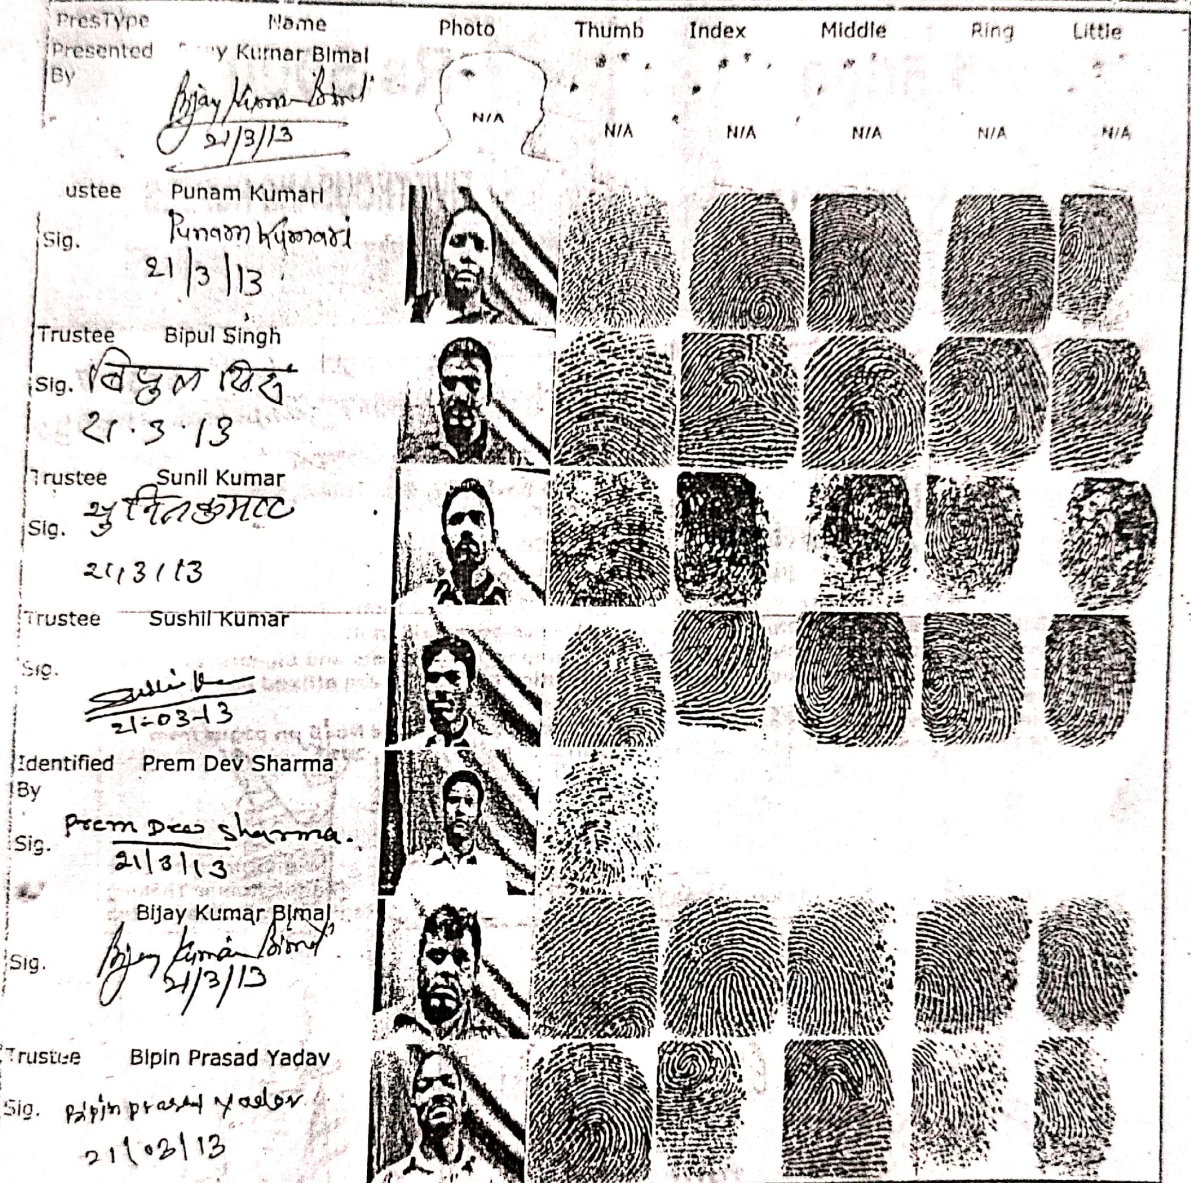 PresType Name Photo Thumb Index Middle Ring Little
Presented By y Kumar Bimal
Bijay Kumar Bimal
21/3/13
N/A N/A N/A N/A N/A N/A
ustee Punam Kumari
Sig. Punam Kumari
21/3/13
Trustee Bipul Singh
Sig. विपुल सिंह
21.3.13
Trustee Sunil Kumar
Sig. सुनिल कुमार
21/3/13
Trustee Sushil Kumar
Sig.
21-03-13
Identified By Prem Dev Sharma
Sig. Prem Dev Sharma.
21/3/13
Bijay Kumar Bimal
Sig. Bijay Kumar Bimal
21/3/13
Trustee Bipin Prasad Yadav
Sig. Bipin prasad yadav
21/03/13